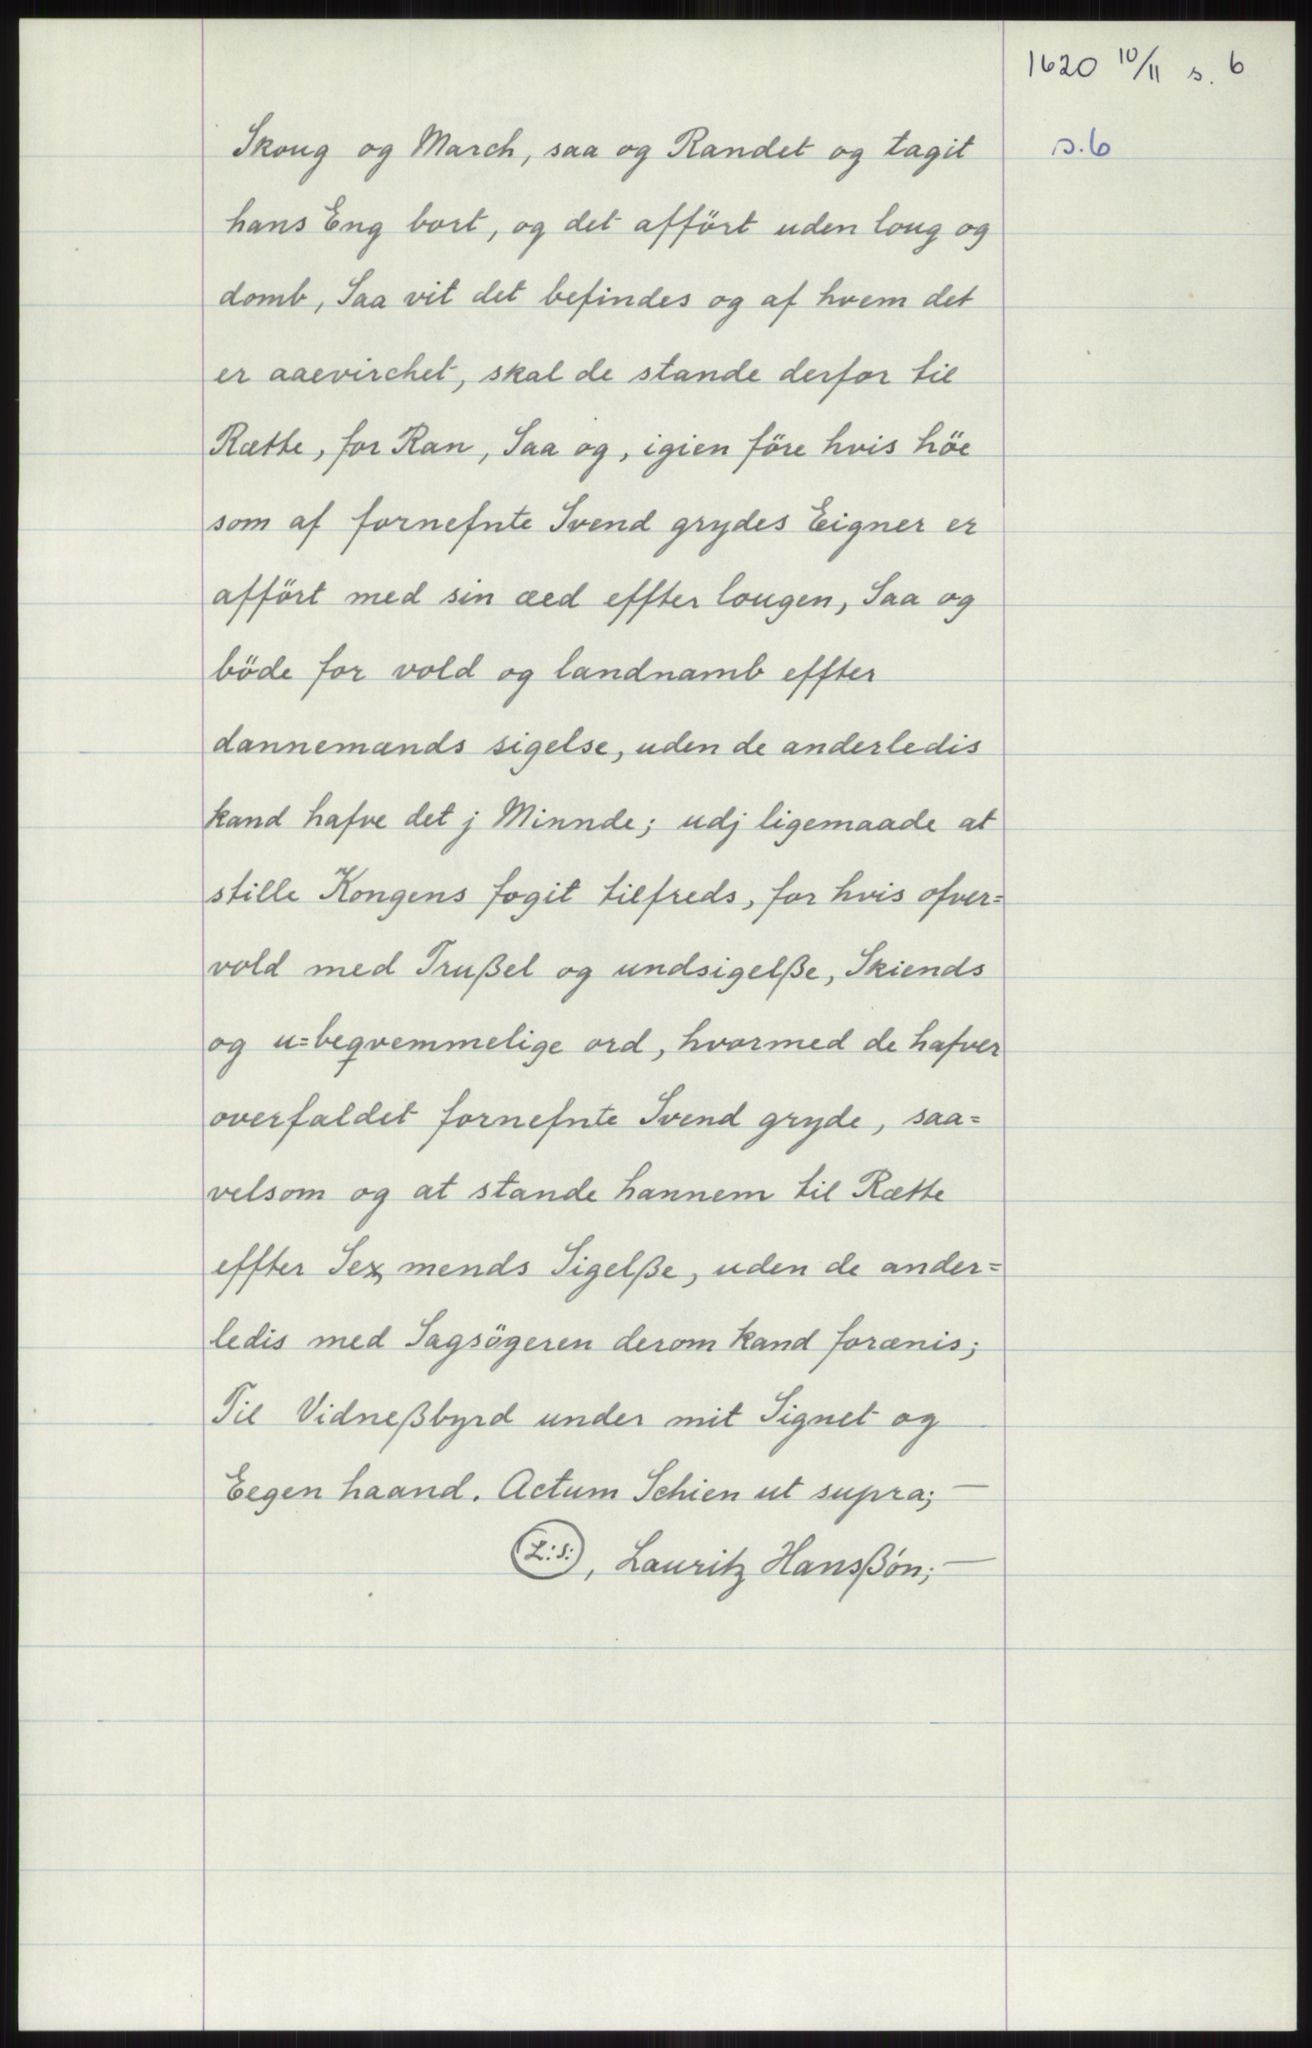 1620 10/11 s. 6
s. 6
Skoug og March, saa og Randet og tagit
hans Eng bort, og det afført uden loug og
domb, Saa vit det befindes og af hvem det
er aaevirchet, skal de stande derfor til
Rætte, for Ran, Saa og, igien före hvis höe
som af fornefnte Svend grydes Eigner er
affört med sin æed effter lougen, Saa og
böde for vold og landnamb effter
dannemænds sigelse, uden de anderledis
kand hafve det j Minnde; udj ligemaade at
stille Kongens fogit tilfreds, for hvis ofver=
vold med Trußel og undsigelße, Skiends
og u=beqvemmelige ord, hvormed de hafver
overfaldet fornefnte Svend gryde, saa=
velsom og at stande hannem til Rætte
effter Sex mends Sigelße, uden de ander=
ledis med Sagsögeren derom kand forænis;
Til Vidneßbyrd under mit Signet og
Eegen haand. Actum Schien ut supra; —
L:S:, Lauritz Hansßön; —